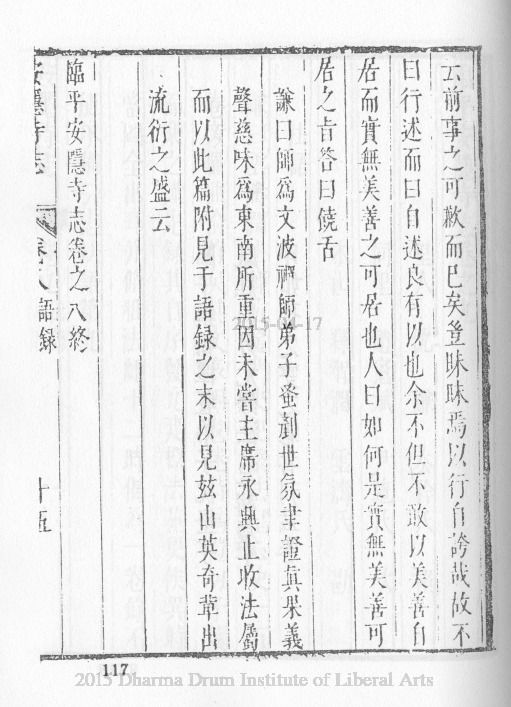 云前事之可歉而已矣豈昧昧焉以行自誇哉故不
曰行述而曰自述良有以也余不但不敢以美善自
居而實無美善之可居也人曰如何是實無美善可
居之旨答曰饒舌
謙曰師爲文波禪師弟子蚤剷世氛聿證眞果義
聲慈味爲東南所重因未嘗主席永興止收法屬
而以此篇附見于語録之末以見玆山英奇輩出
流衍之盛云
臨平安隱寺志卷之八終
安隱寺志 卷八語録 十五
2015-04-17
117
2015 Dharma Drum Institute of Liberal Arts